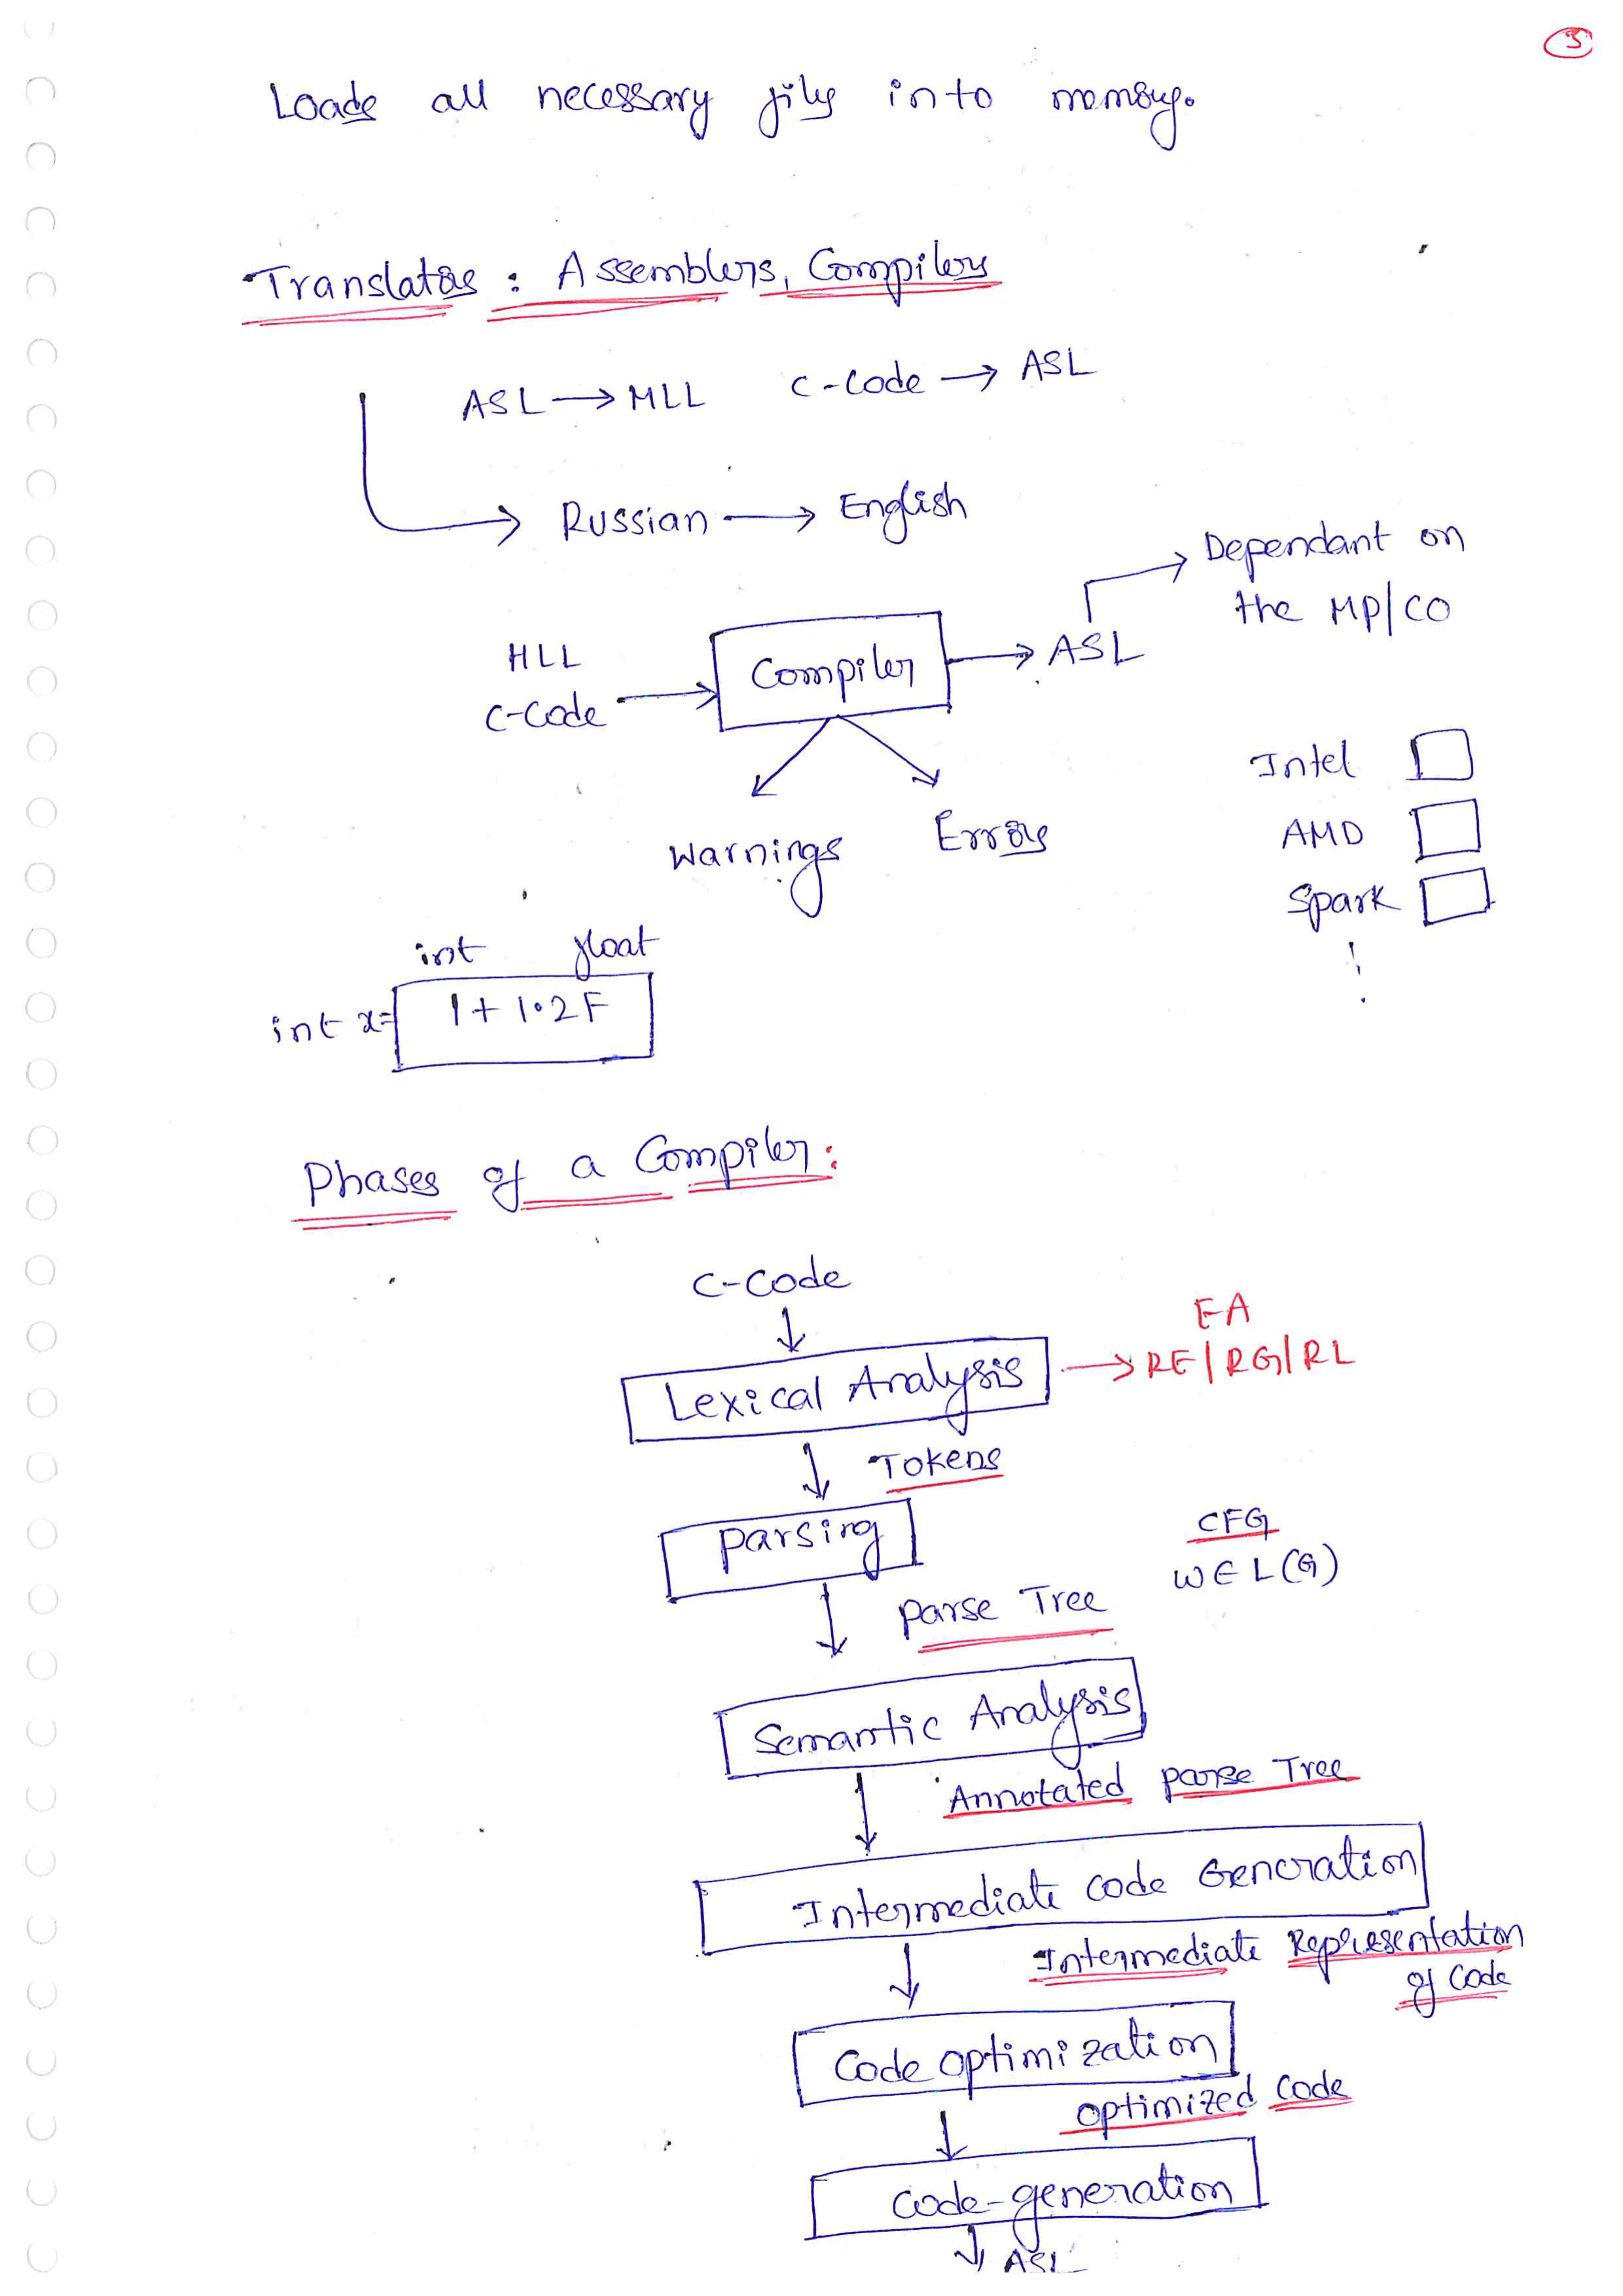 3
Loads all necessary files into memory.
Translators : Assemblers, Compilers
ASL → MLL C-Code → ASL
Russian → English
Dependant on
the MP/CO
HLL
C-Code → Compiler → ASL
Warnings Errors
Intel
AMD
Spark
int float
int x= 1 + 1.2F
Phases of a Compiler:
C-Code
FA
Lexical Analysis → RE/RG/RL
Tokens
Parsing
CFG
W ∈ L(G)
Parse Tree
Semantic Analysis
Annotated Parse Tree
Intermediate Code Generation
Intermediate Representation
of Code
Code Optimization
Optimized Code
Code-generation
ASL